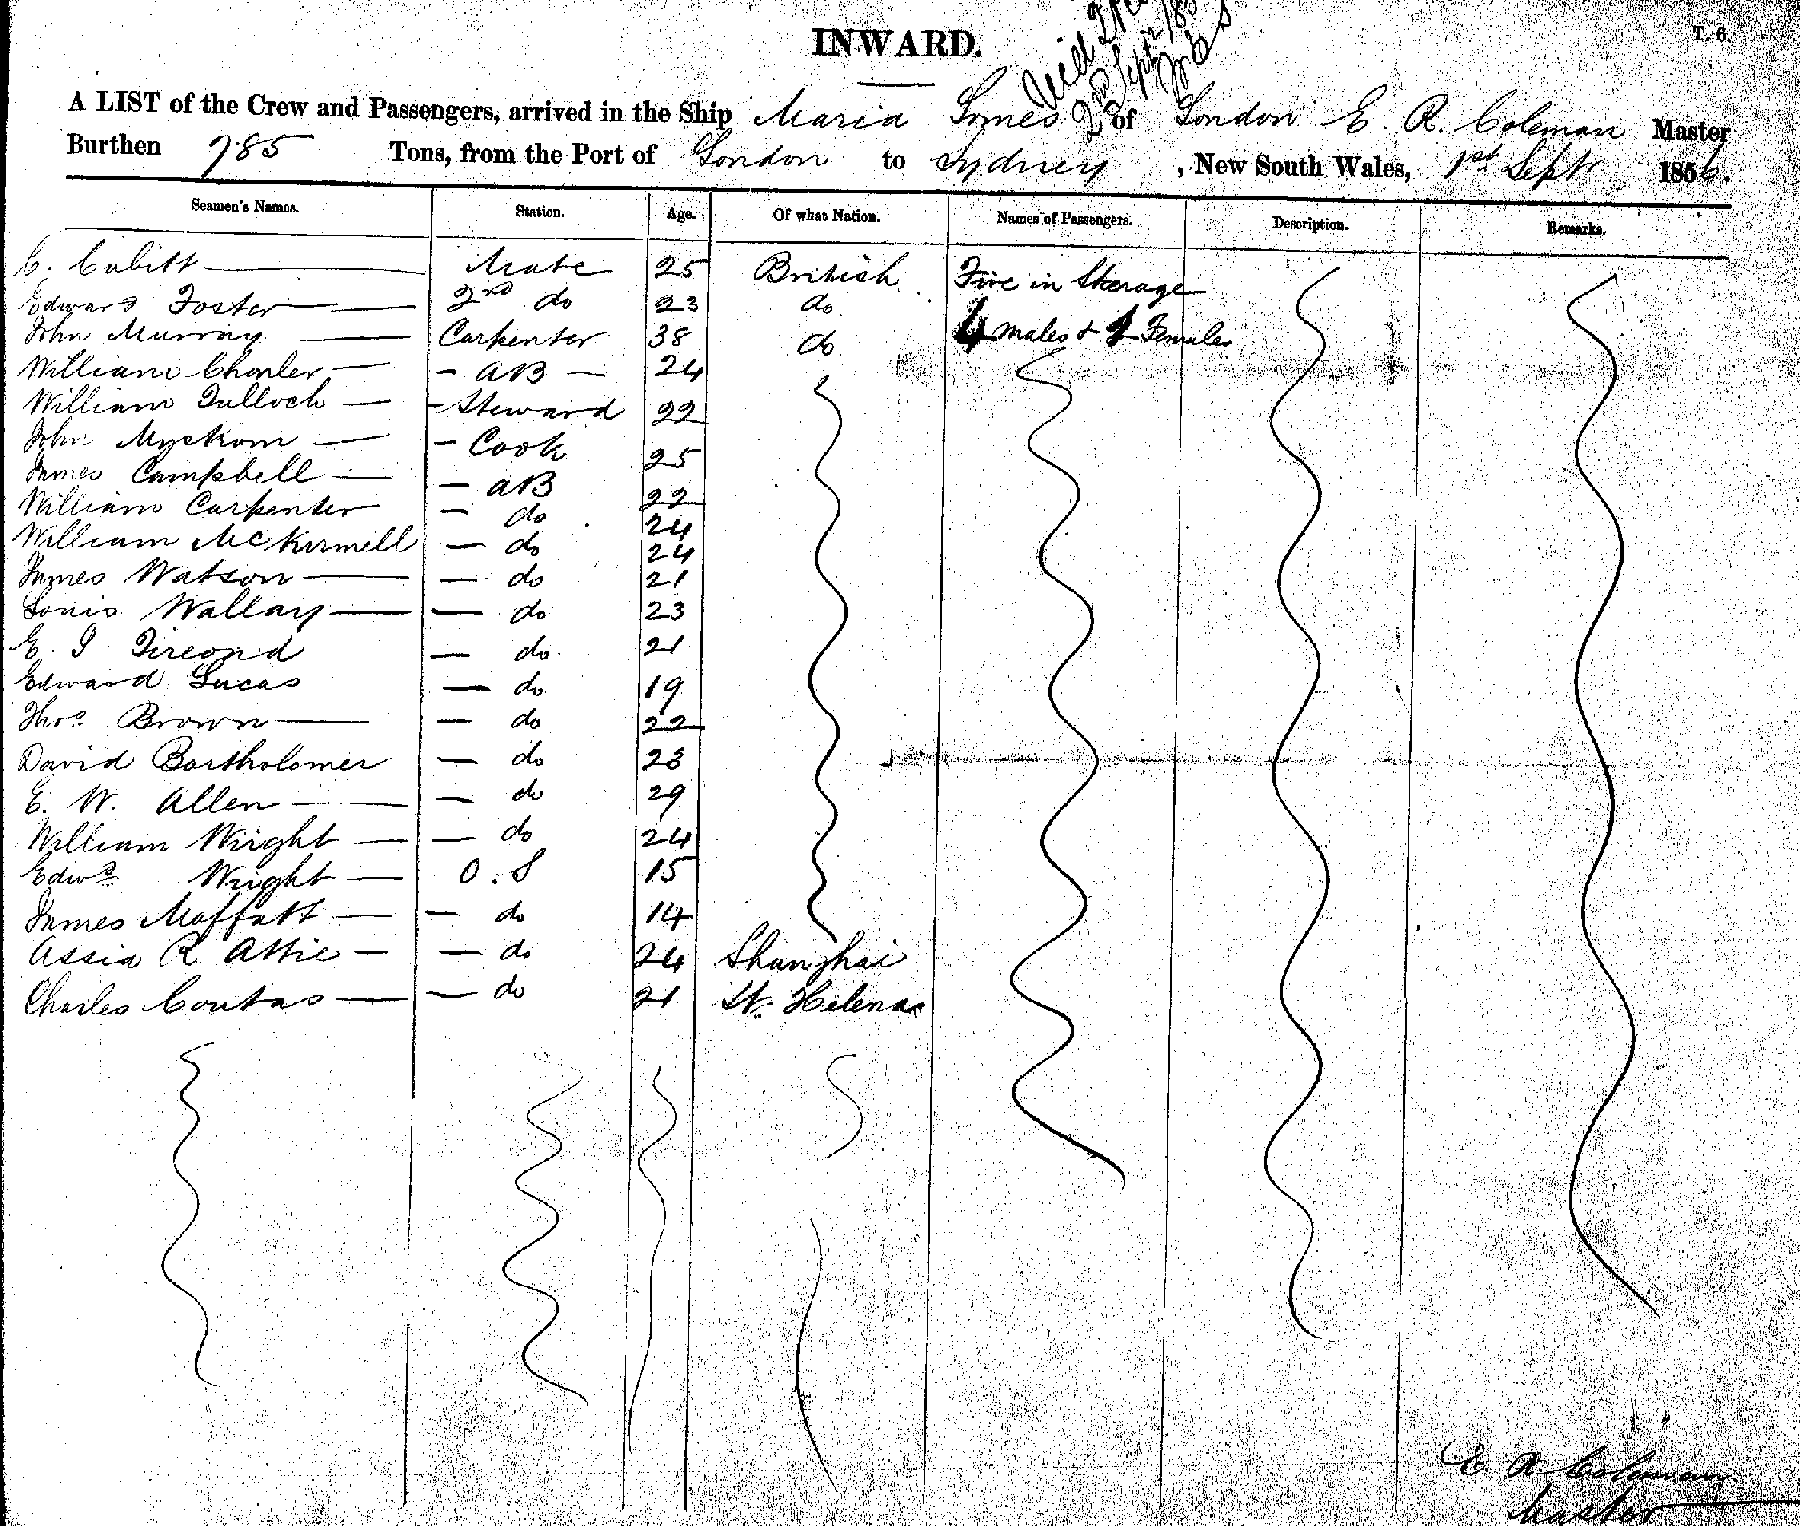 INWARD.
T. 6
2nd Sept
A LIST of the Crew and Passengers, arrived in the Ship Maria Somes of London E. A. Coleman Master
Burthen 785 Tons, from the Port of London to Sydney, New South Wales, 1st Sept 1856.
Seamen's Names. Station. Age. Of what Nation. Names of Passengers. Description. Remarks.
E. Cubitt Mate 25 British Five in Steerage
Edward Foster 2nd do 23 do
John Murray Carpenter 38 do 4 males & 1 Females
William Charler AB 24
William Tulloch Steward 22
John Cook 25
James Campbell AB 22
William Carpenter do 24
William do 24
James Watson do 21
Louis Wallary do 23
E. do 21
Edward Lucas do 19
Thos Brown do 22
David Bartholomer do 23
E. W. Allen do 29
William Wright do 24
Edwd Wright O.S 15
James Moffatt do 14
Assia R Attie do 24 Shanghai
Charles Coutas do 21 St. Helena
E A Coleman
Master